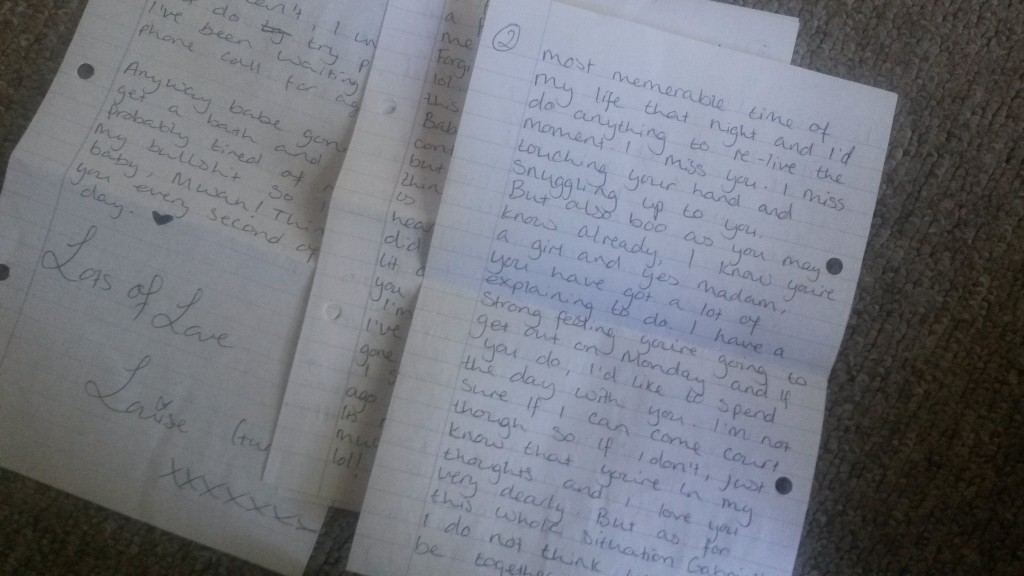 do try
I've been waiting
phone call for
Anyway babe
get a bath and
probably tired of
my bullshit so
baby, Mwah!
you every second of
day. ♥
Lots of Love
Louise
xxxxxxx
a
me
lot
this
but
us
did
you
I'm
I've
gone
ago
lol!
②
most memerable time of
my life that night and I'd
do anything to re-live the
moment. I miss you. I miss
touching your hand and
snuggling up to you.
But also boo as you may
know already, I know you're
a girl and yes madam,
you have got a lot of
explaining to do. I have a
strong feeling you're going to
get out on Monday and if
you do, I'd like to spend
the day with you. I'm not
sure if I can come court
though so if I don't, just
know that you're in my
thoughts and I love you
very dearly. But as for
this whole situation
I do not think
be together